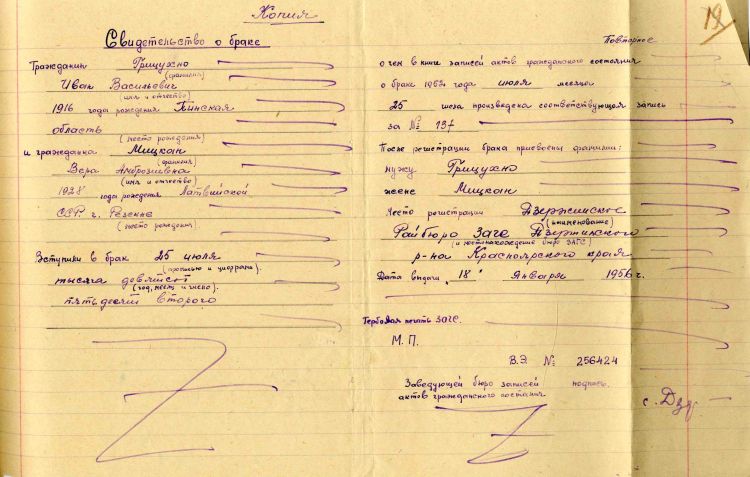 Копия
Свидетельство о браке
Гражданин Грицухно
(фамилия)
Иван Васильевич
(имя и отчество)
1916 года рождения Пинская
область
(место рождения)
и гражданка Мицкан
(фамилия)
Вера Амброзиевна
(имя и отчество)
1928 года рождения Латвийской
ССР г. Резекне
(место рождения)
Вступили в брак 25 июля
(прописью и цифрами).
тысяча девятсот
(год, месяц и число).
пятьдесят второго
19
Повторное
о чем в книге записей актов гражданского состояния
о браке 1952 года июля месяца
25 числа произведена соответствующая запись
за № 137
После регистрации брака присвоены фамилии:
мужу Грицухно
жене Мицкан
Место регистрации Дзержинское
(наименование
Райбюро Загс Дзержинского
и местонахождение бюро ЗАГС)
р-на Красноярского края
Дата выдачи "18" Января 1956 г.
Гербовая печать ЗАГС.
М. П.
В.Э. № 256424
Заведующей бюро записей подпись.
актов гражданского состания
с. Дзе